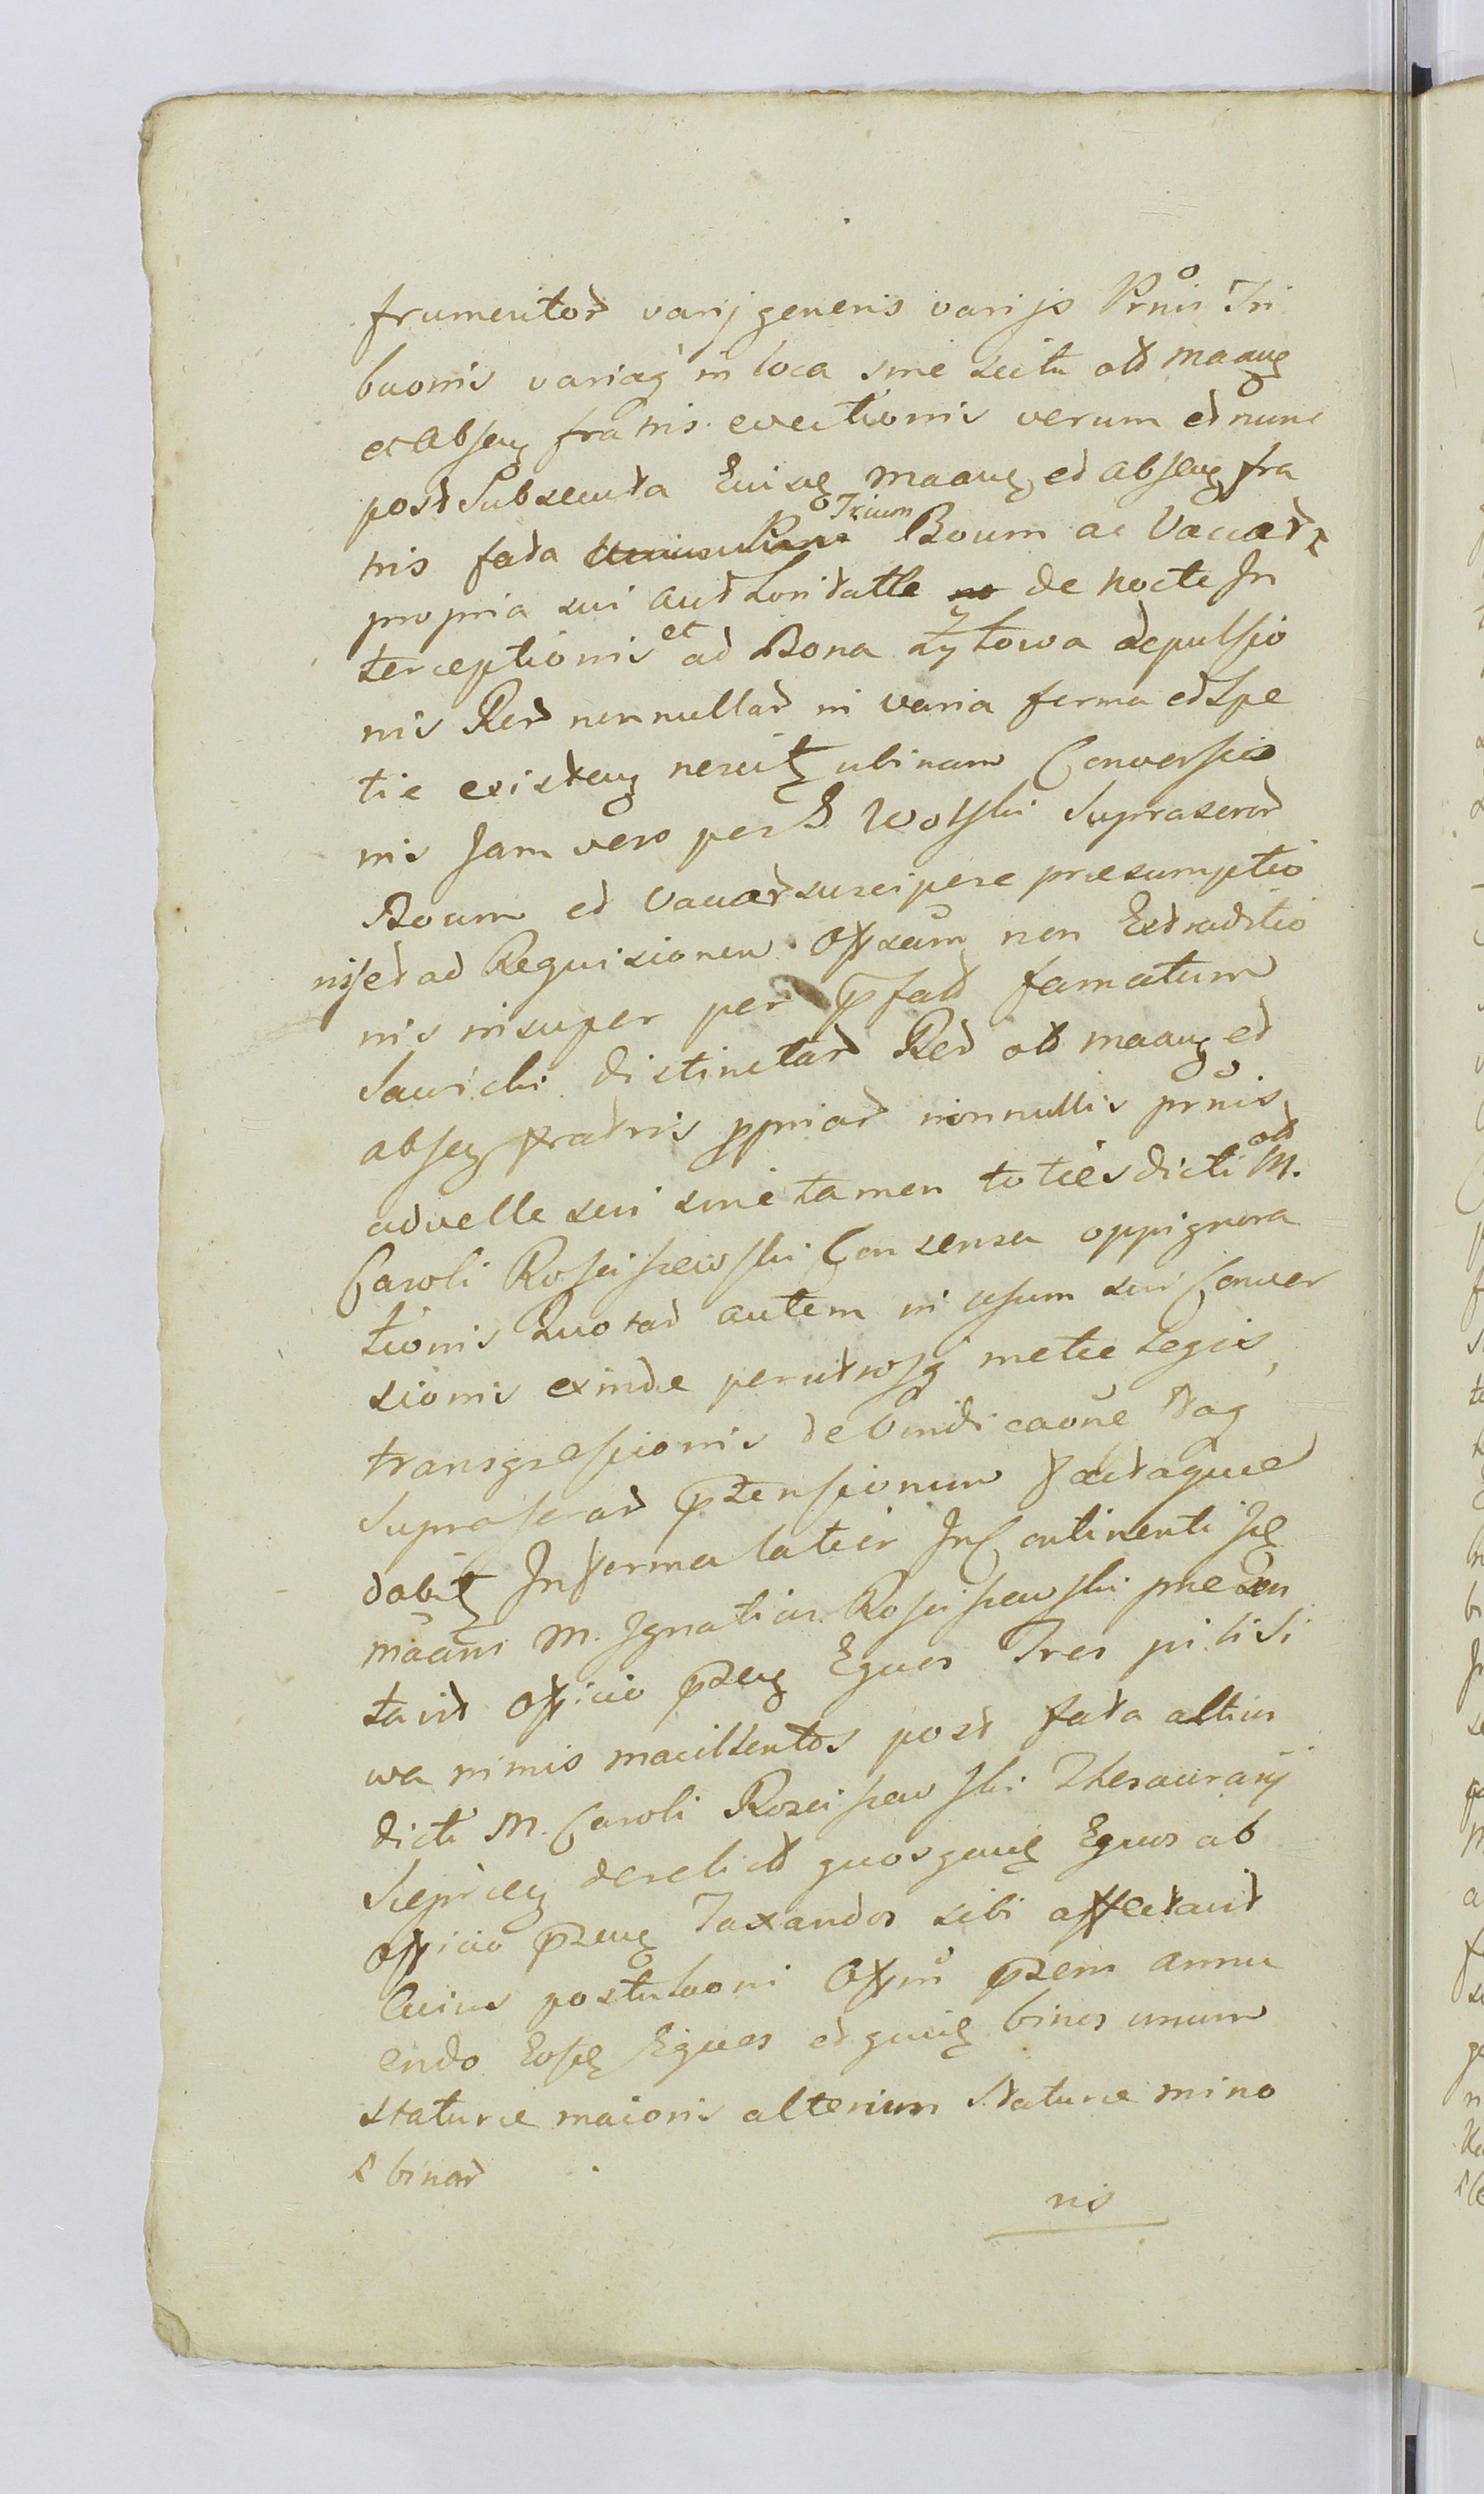 frumentor varij generis varijs Prnis Tri
buonis variaq in loca sine scitu olt maang
et absenq fratris evectionis verum et nunc
post subsecuta Eiusq maang et absenq fra
tris fata Trium Boum ac Vaccar
propria sui authoritatte de nocte In
terceptionis et ad Bona Zytowa depulsio
nis Rer nonnullar in varia forma et Spe
tie existenq nescitq ubinam Conversio
nis Jam vero per G Wolski Suprascrar
Boum et Vaccar suscipere præsumptio
nis et ad Requisionem Offsam non Extraditio
nis insuper per pfatt famatum
Sawicki distinctar Rer olt maang et
absenq fratris ppriar nonnullis prnis
ad velle sui sine tamen toties dicti olt M.
Caroli Rosciszewski Consensu oppignora
tionis Quorar autem in usum sui Conver
sionis exinde per utrosq metæ Legis
transgressionis de Vindicaone Taq
suprascrar ptensionum factaque
dabitq In forma latior In Continenti Jdq
maans M. Ignatius Rosciszewski præsen
tavit officio pzenq Equos Tres pilisi
wa nimis macillentos post fata altius
dicti M. Caroli Rosciszewski Thesaurarij
Sieprcenq derelictt quosquidq Equos ab
officio pzenq Taxandos sibi affectavit
Cuius postulaoni Offm pzens annu
endo Eosdq Equos et quidq binos unum
staturæ maioris alterum staturæ mino
binar
ris